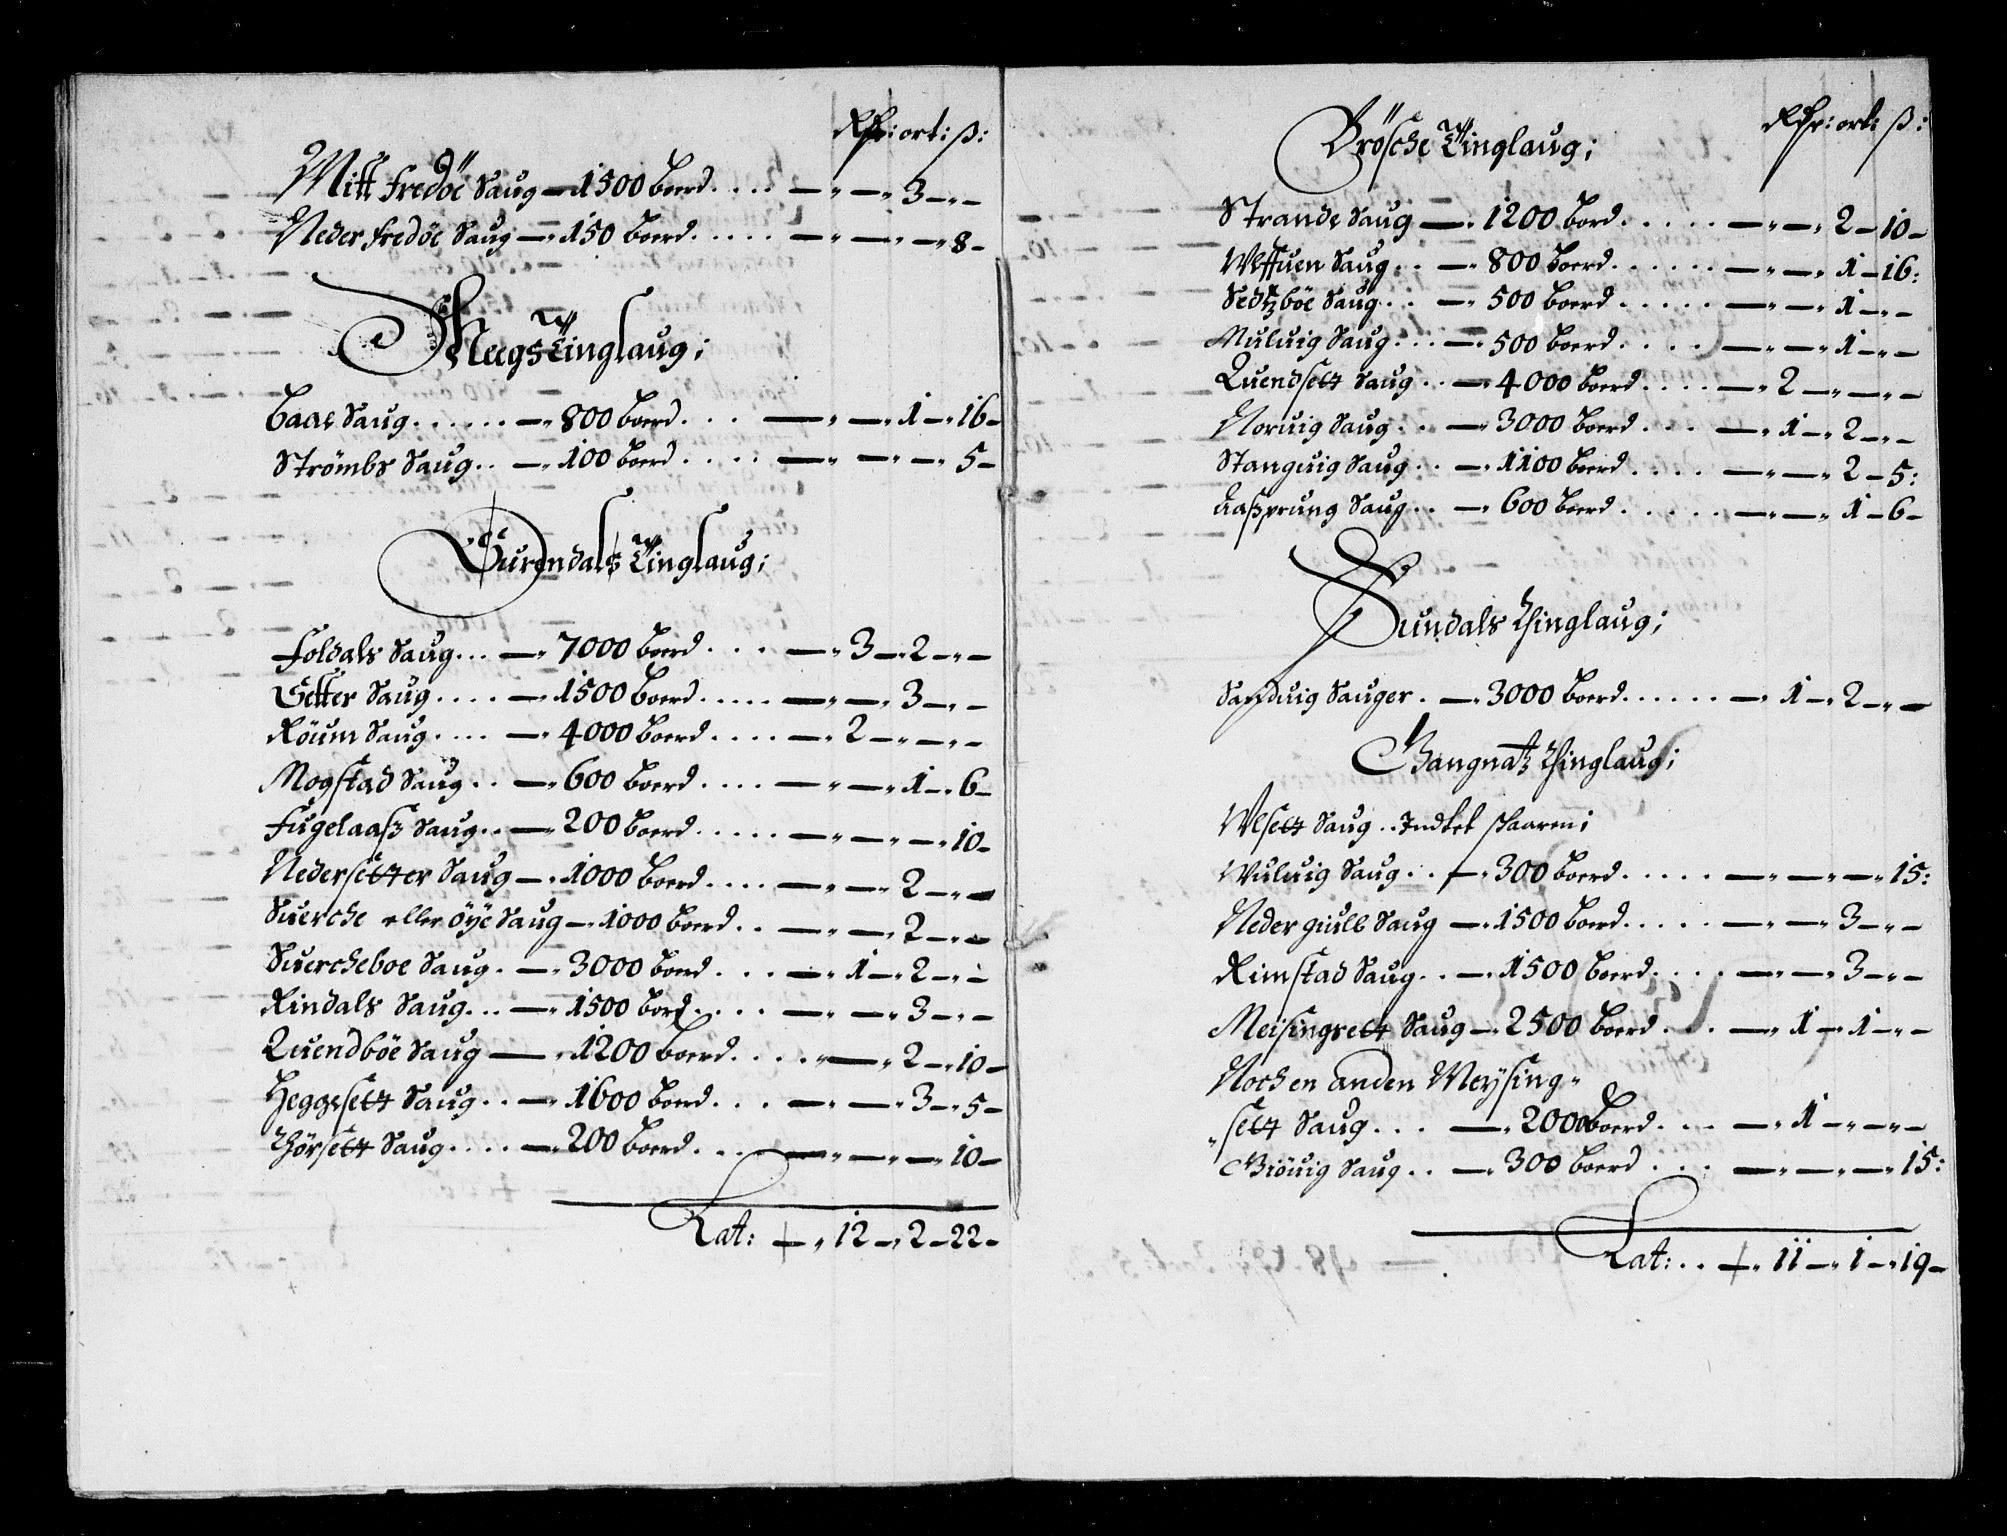 Rdr: ort: ß:
Mitt Fredöe Saug — 1500 boerd.... — „ — „ 3 — „ —
Neder Fredöe Saug — „ 150 boerd..... — „ — „ — „ 8 —
Neegs Tinglaug;
Baae Saug...... — „ 800 boerd... — „ — „ 1 — „ 16 —
Strömbs Saug.. — „ 100 boerd.... — „ — „ — „ 5 —
Surendals Tinglaug;
Foldals Saug... — „ 7000 boerd... — „ 3 — „ 2 — „ —
Setter Saug.... — „ 1500 boerd..... — „ — „ 3 — „ —
Röum Saug.... — „ 4000 boerd.... — „ 2 — „ — „ —
Mogstad Saug.. — „ 600 boerd.... — „ — „ 1 — „ 6 —
Fugelaaß Saug.. — „ 200 boerd..... — „ — „ — „ 10 —
Nedersetter Saug — „ 1000 boerd.... — „ — „ 2 — „ —
Suerche eller öye Saug — „ 1000 boerd.. — „ — „ 2 — „ —
Suercheboe Saug. — „ 3000 boerd... — „ 1 — „ 2 — „ —
Rindals Saug... — „ 1500 bord.... — „ — „ 3 — „ —
Quendböe Saug — „ 1200 boerd.... „ — „ 2 — „ 10 —
Heggesett Saug.. — „ 1600 boerd... — „ — „ 3 — „ 5 —
Thörsett Saug.... — „ 200 boerd.... — „ — „ — „ 10 —
Lat: — „ 12 — „ 2 — 22 —
Rdr: ort: ß:
Brösche Tinglaug;
Strande Saug — „ 1200 bord..... — „ — „ 2 — 10 —
Ulffuen Saug.. — „ 800 boerd...... — „ — „ 1 — 16:
Sedtzböe Saug.. — „ 500 boerd..... — „ — „ 1 — „ —
Muluig Saug... — „ 500 boerd.... — „ — „ 1 — „ —
Quendsett Saug.. — „ 4000 boerd.... — „ 2 — „ — „ —
Noruig Saug.. — „ 3000 boerd... — „ 1 — „ 2 — „ —
Stanguig Saug.. — „ 1100 boerd.... — „ — „ 2 — 5:
Aaßprung Saug.. — „ 600 boerd..... — „ — „ 1 — 6 —
Sundals Thinglaug;
Sanduig Sauger. — „ 3000 boerd...... — „ 1 — „ 2 — „ —
Bangnatz Thinglaug;
Ulsett Saug.. Indtet skaaren;
Wuluig Saug.. — „ 300 boerd..... — „ — „ — „ 15:
Neder giull Saug — „ 1500 boerd..... — „ — „ 3 — „ —
Rimstad Saug.. — „ 1500 boerd.... — „ — „ 3 — „ —
Meisingsett Saug — „ 2500 boerd... — „ 1 — „ 1 — „ —
Noch en anden Meysing„
„sett Saug... — „ 2000 boerd.... — „ 1 — „ — „ —
Biöuig Saug.. — „ 300 boerd... — „ — „ — „ 15:
Lat:.. — „ 11 — „ 1 — „ 19 —